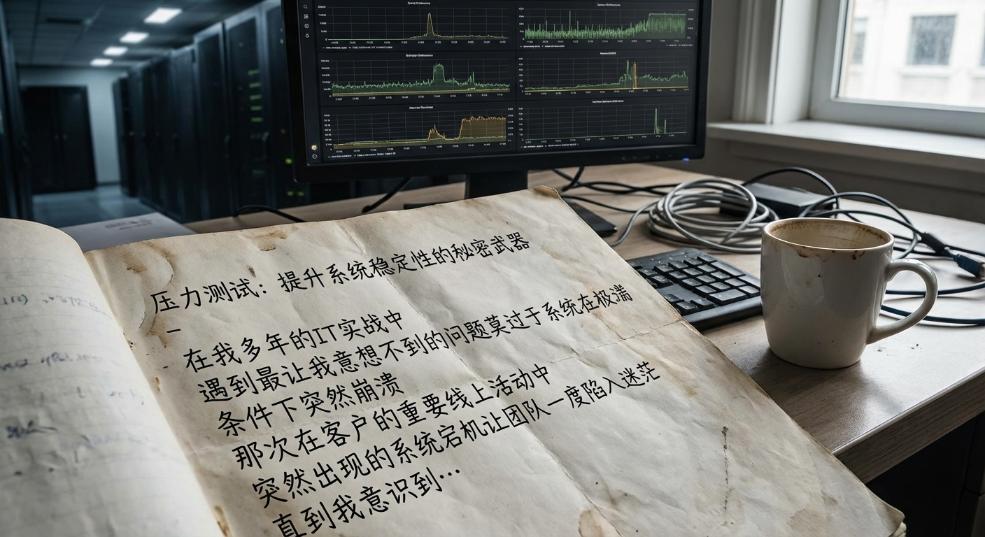 压力测试：提升系统稳定性的秘密武器
–
在我多年的IT实战中
遇到最让我意想不到的问题莫过于系统在极端
条件下突然崩溃
那次在客户的重要线上活动中
突然出现的系统宕机让团队一度陷入迷茫
直到我意识到…